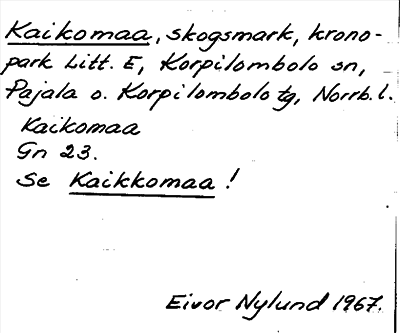 Kaikomaa, skogsmark, krono-
park Litt. E, Korpilombolo sn,
Pajala o. Korpilombolo tg, Norrb. l.
Kaikomaa
Gn 23.
Se Kaikkomaa!
Eivor Nylund 1967.